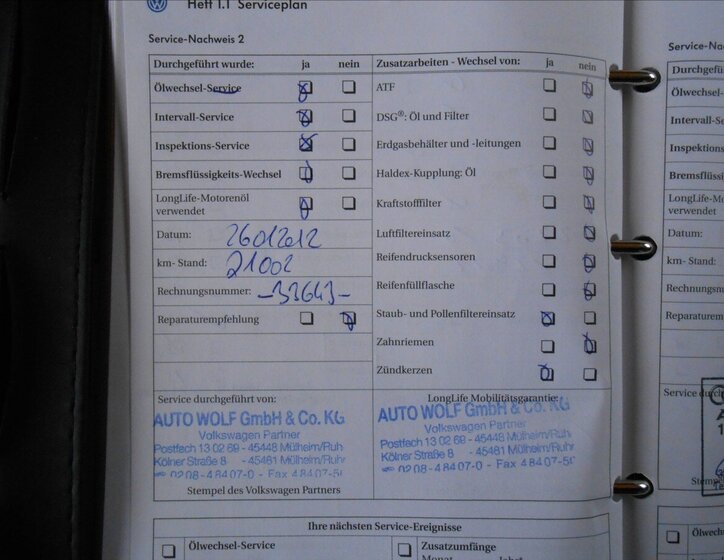 Heft 1.1 Serviceplan
Service-Nachweis 2
Durchgeführt wurde: ja nein
Ölwechsel-Service
Intervall-Service
Inspektions-Service
Bremsflüssigkeits-Wechsel
LongLife-Motorenöl
verwendet
Datum: 26012012
km- Stand: 21002
Rechnungsnummer: -33643-
Reparaturempfehlung
Zusatzarbeiten - Wechsel von: ja nein
ATF
DSG®: Öl und Filter
Erdgasbehälter und -leitungen
Haldex-Kupplung: Öl
Kraftstofffilter
Luftfiltereinsatz
Reifendrucksensoren
Reifenfüllflasche
Staub- und Pollenfiltereinsatz
Zahnriemen
Zündkerzen
Service durchgeführt von:
AUTO WOLF GmbH & Co. KG
Volkswagen Partner
Postfach 13 02 69 - 45448 Mülheim/Ruhr
Kölner Straße 8 - 45481 Mülheim/Ruhr
0208-48407-0 - Fax 48407-50
Stempel des Volkswagen Partners
LongLife Mobilitätsgarantie:
AUTO WOLF GmbH & Co. KG
Volkswagen Partner
Postfach 13 02 69 - 45448 Mülheim/Ruhr
Kölner Straße 8 - 45481 Mülheim/Ruhr
0208-48407-0 - Fax 48407-50
Ihre nächsten Service-Ereignisse
Ölwechsel-Service
Zusatzumfänge
Monat Jahr
Service-Na
Durchgefü
Ölwechsel-
Intervall-S
Inspektions
Bremsflüss
LongLife-Mo
verwendet
Datum:
km- Stand:
Rechnungsn
Reparaturem
Service durch
Stemp
Ölwec